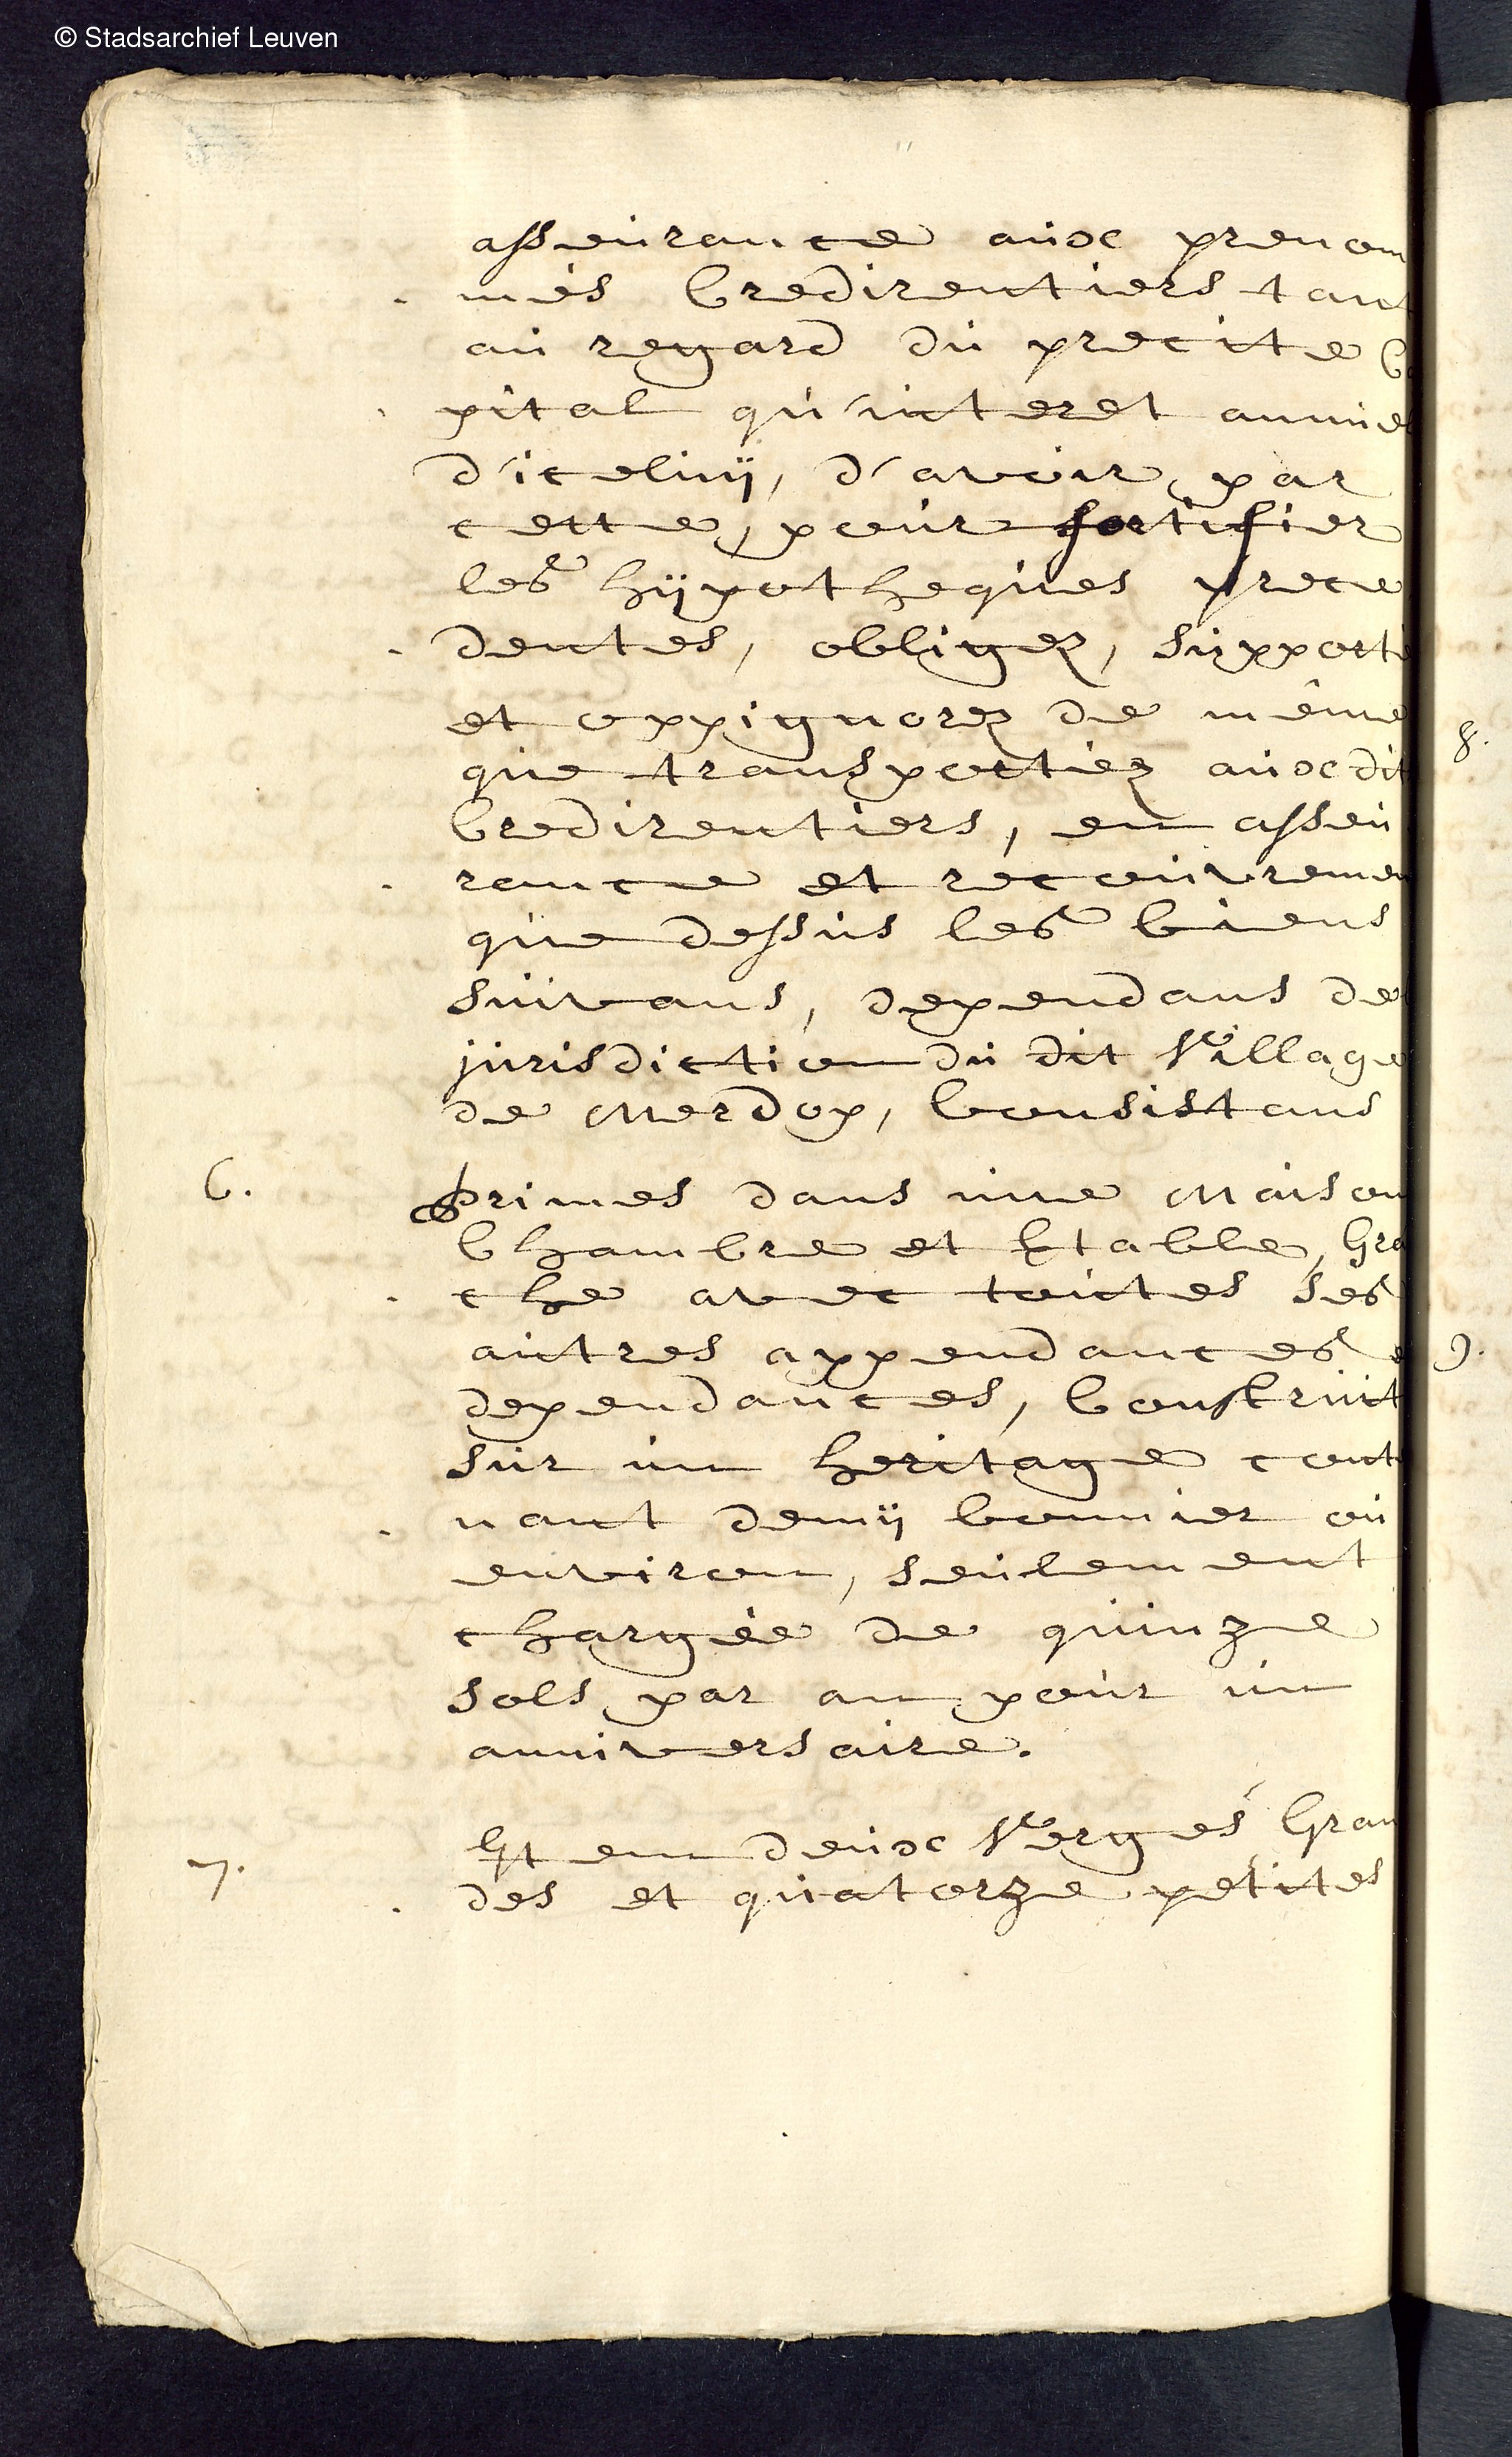 © Stadsarchief Leuven
asseurance aux prenom
més Credirentiers tant
au regard du precite Ca
pital qu'interet annuel
d'iceluÿ, d'avoir, par
cette, pour fortifier
les hÿpotheques prece
dentes, obligez, supporté
et oppignorez de même
que transportiéz aux dit
Credirentiers, en asseu
rance et récouvremen
que dessus les biens
suivans, dependans de
jurisdiction du dit Village
de Merdop, Consistans
6. primes dans une Maison
Chambre et Etable, Gra
che avec toutes ses
autres appendances e
dependances, Construit
sur un heritage conte
nant demÿ bonnier ou
environ, seulement
chargée de quinze
sols par an pour un
anniversaire.
7. Item deux Verges Gran
des et quatorze petites
8.
9.